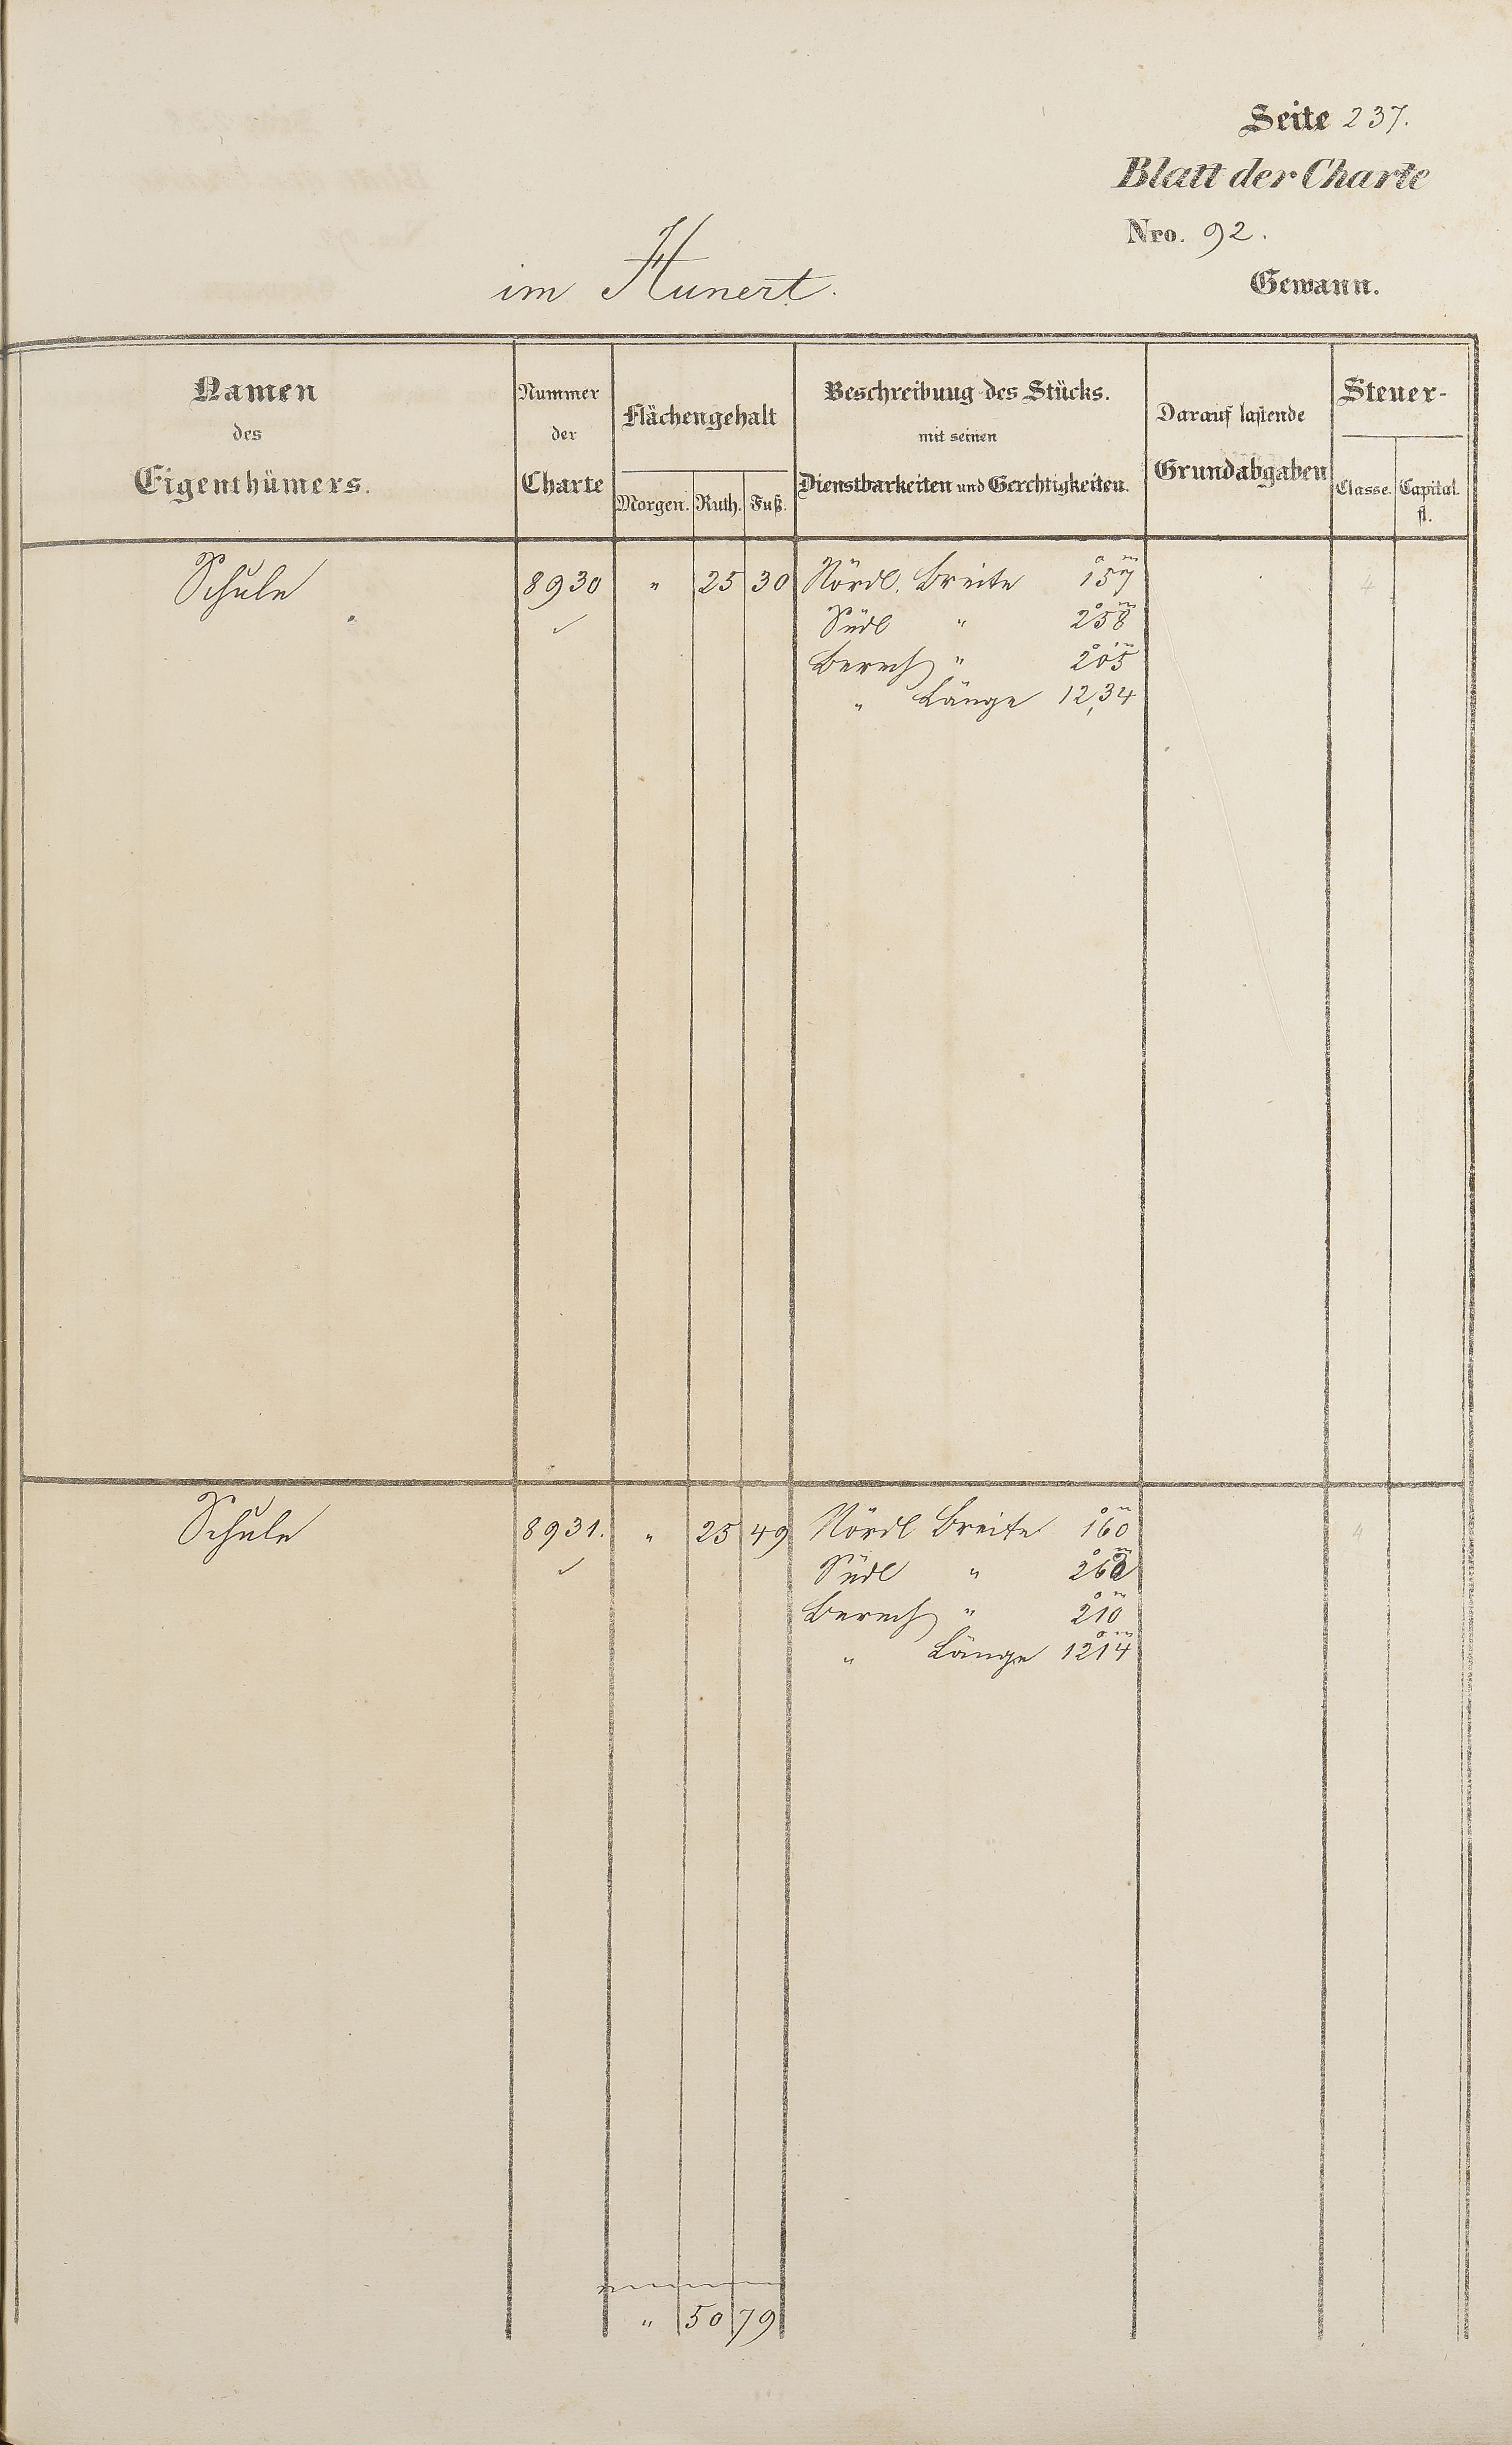 Seite 237.
Blatt der Charte
Nro. 92.
im Hunert.
Gewann.
Namen des Eigenthümers.
Nummer der Charte
Flächengehalt
Morgen. Ruth. Fuß.
Beschreibung des Stücks.
mit seinen
Dienstbarkeiten und Gerechtigkeiten.
Darauf lastende
Grundabgaben
Steuer-
Classe. Capital.
fl.
Schule 8930 " 25 30 Nördl. Breite 1°5‴7 4
Südl " 2°58
Berech " 2°05
" Länge 12,34
Schule 8931. " 25 49 Nördl Breite 1°60 4
Südl " 2°6
Berech " 2°10
" Länge 12°14
" 50 79